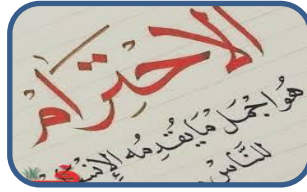 الاحترام
هُوَ اجْمَل مَا يُقَدِمُه الإِنْسَان
للنَّاس